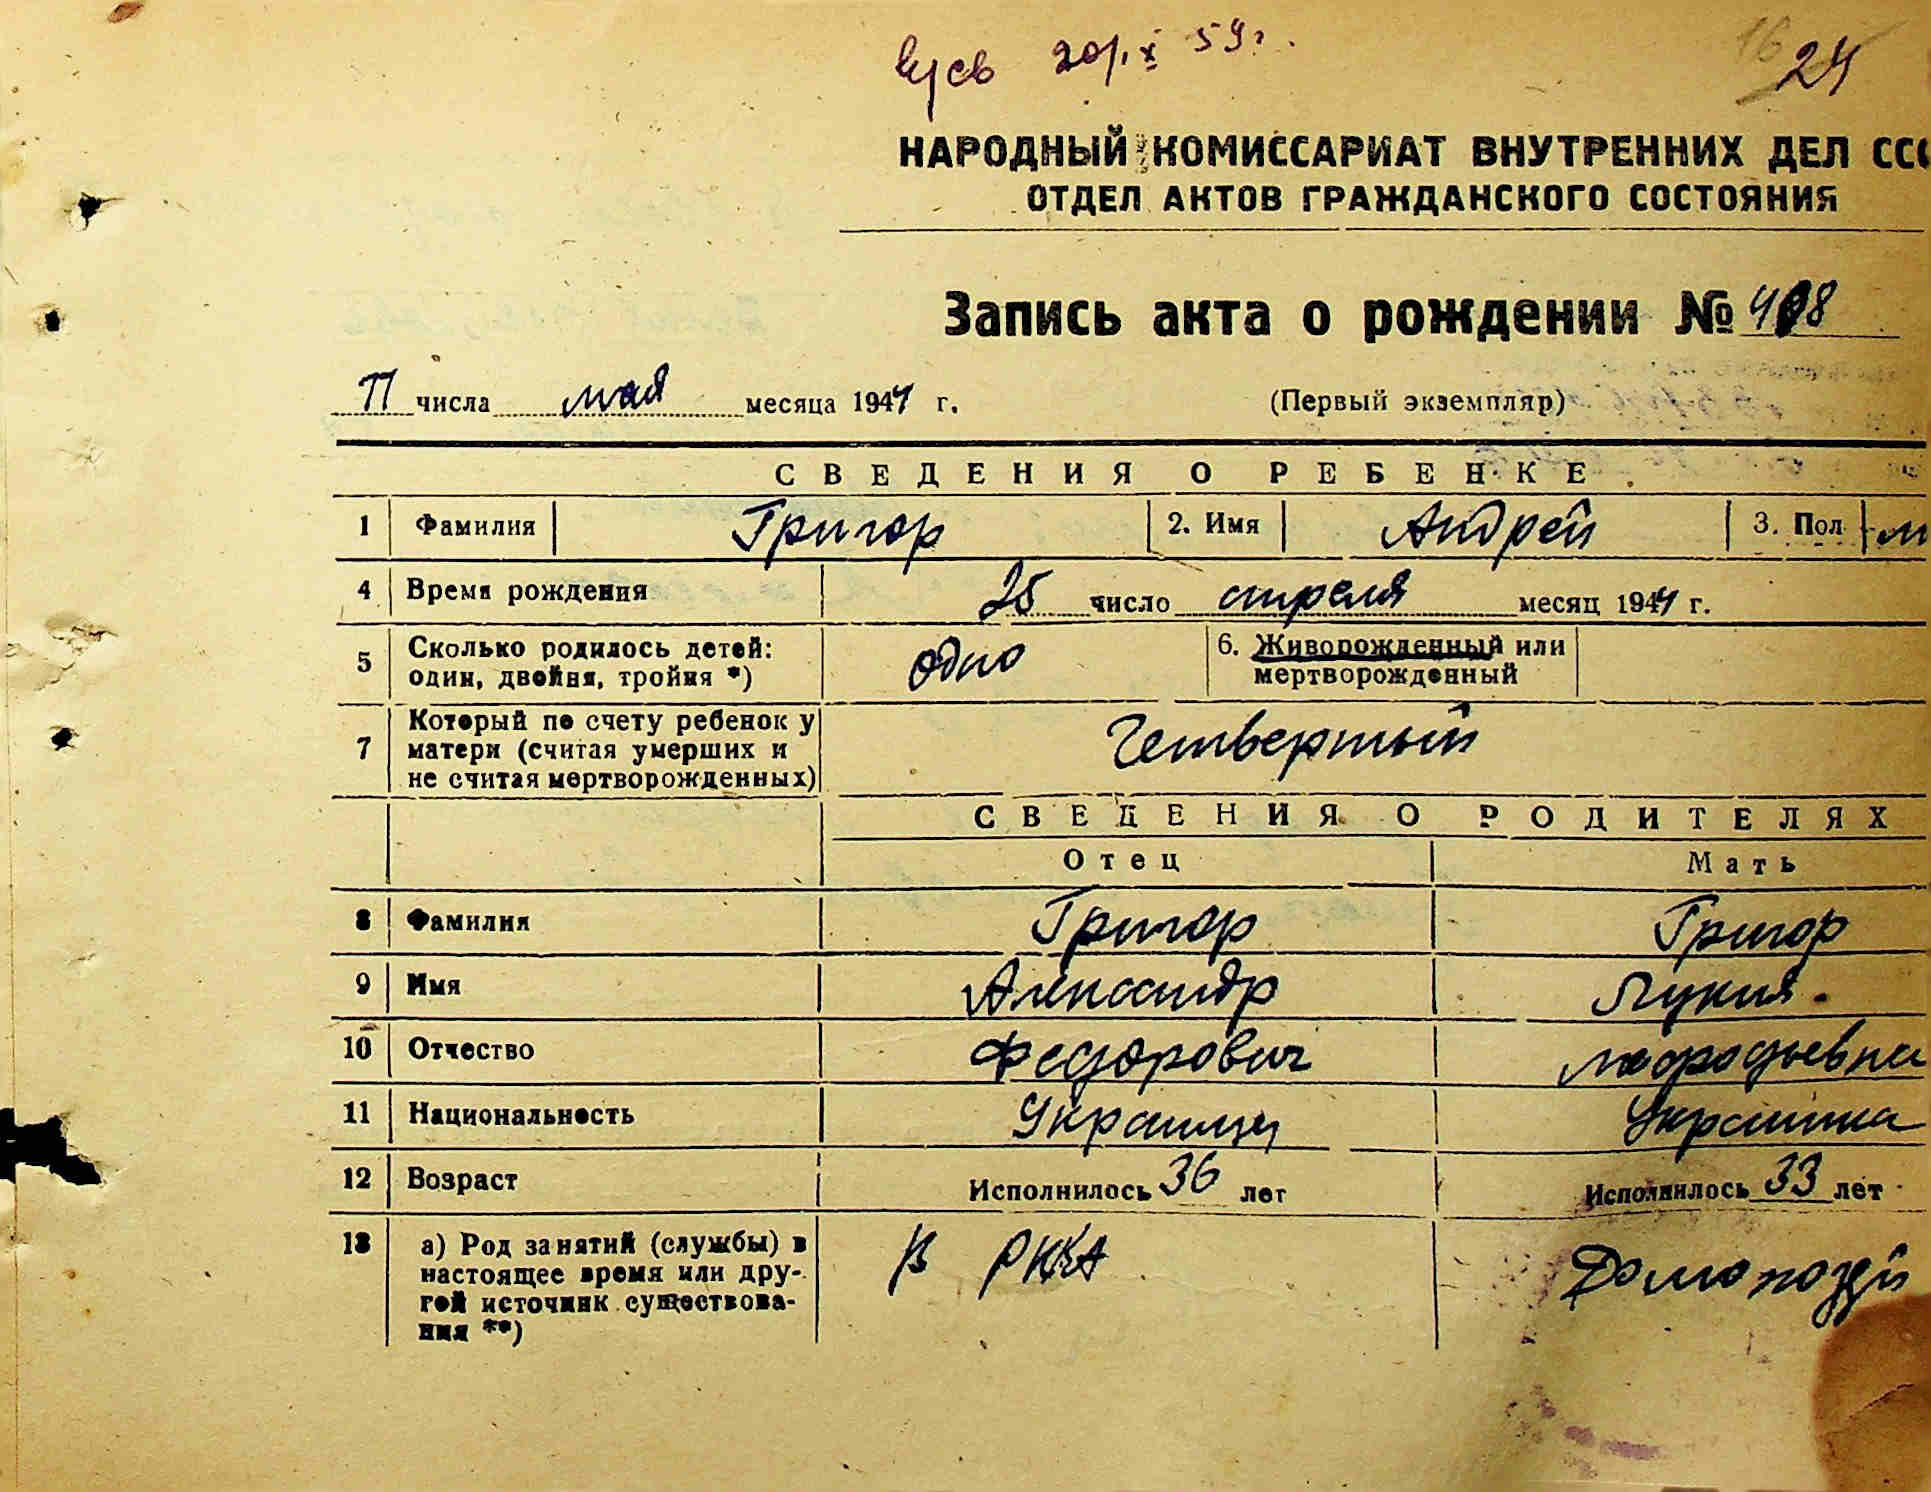 20/X 59г.
16 24
НАРОДНЫЙ КОМИССАРИАТ ВНУТРЕННИХ ДЕЛ ССС
ОТДЕЛ АКТОВ ГРАЖДАНСКОГО СОСТОЯНИЯ
Запись акта о рождении №
11 числа мая месяца 1944 г. (Первый экземпляр)
СВЕДЕНИЯ О РЕБЕНКЕ
1 Фамилия Григор 2. Имя Андрей 3. Пол м
4 Время рождения 25 число апреля месяц 1944 г.
5 Сколько родилось детей: один, двойня, тройня *) одно 6. Живорожденный или мертворожденный
7 Который по счету ребенок у матери (считая умерших и не считая мертворожденных) Четвертый
СВЕДЕНИЯ О РОДИТЕЛЯХ
Отец Мать
8 Фамилия Григор Григор
9 Имя Александр Лукия
10 Отчество Федорович
11 Национальность Украинец Украинка
12 Возраст Исполнилось 36 лет Исполнилось 33 лет
13 а) Род занятий (службы) в настоящее время или дру-
гой источник существова-
ния **) В РККА